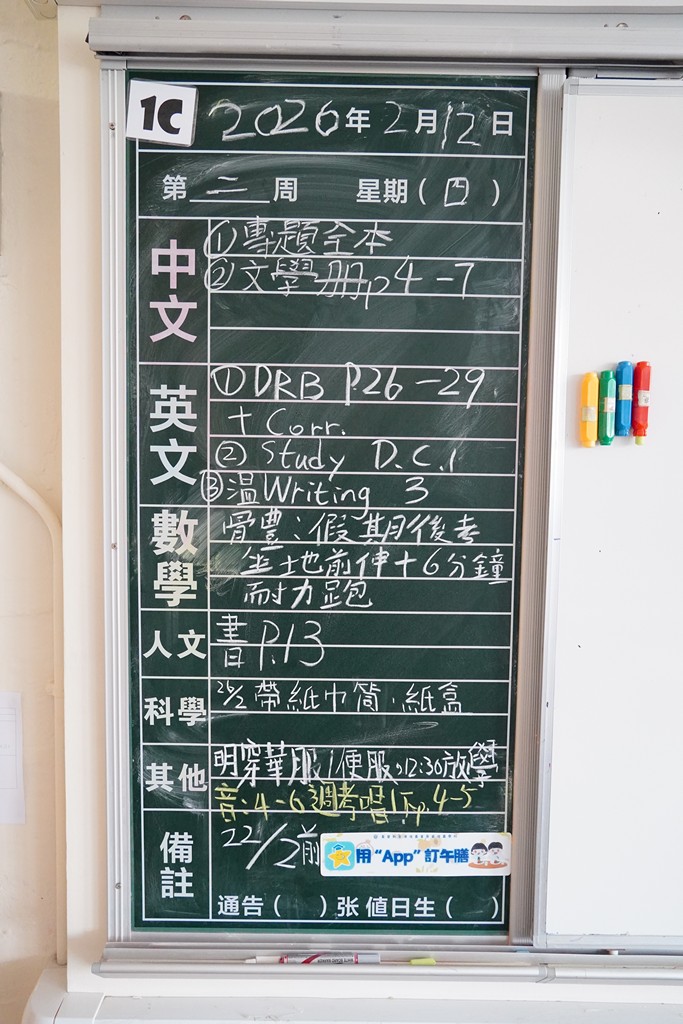 1C 2026年2月12日
第二周 星期(四)
中文
①專題全本
②文學册p4-7
英文
①DRB P.26-29
+ Corr.
② Study D.C.1
③溫Writing 3
數學
骨豐：假期後考
坐地前伸+6分鐘
耐力跑
人文
書P.13
科學
26/2帶紙巾筒、紙盒
其他
明穿華服/便服,12:30放學
音:4-6週考唱
4-5
備註
22/2前
用“App”訂午膳
通告( )张 值日生( )